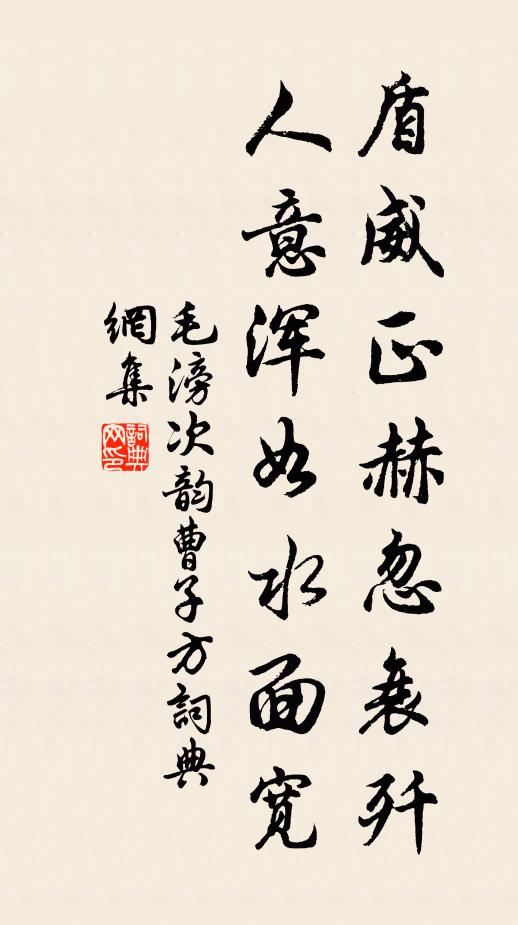 盾威正赫忽衰歼
人意浑如水面宽
毛滂次韵曹子方詞典
網集
詞典網印